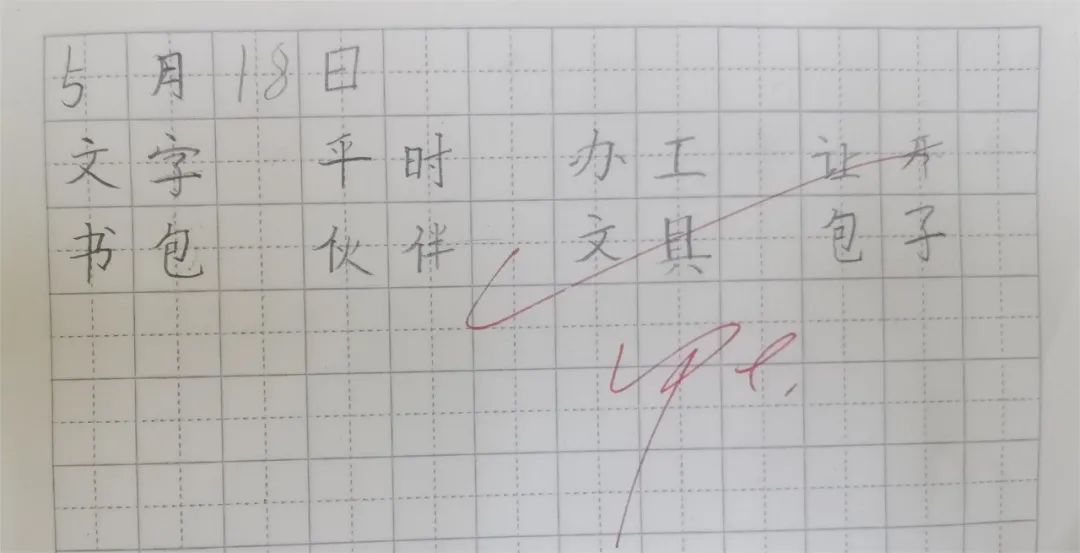 5月18日
文字 平时 办工 让开
书包 伙伴 文具 包子